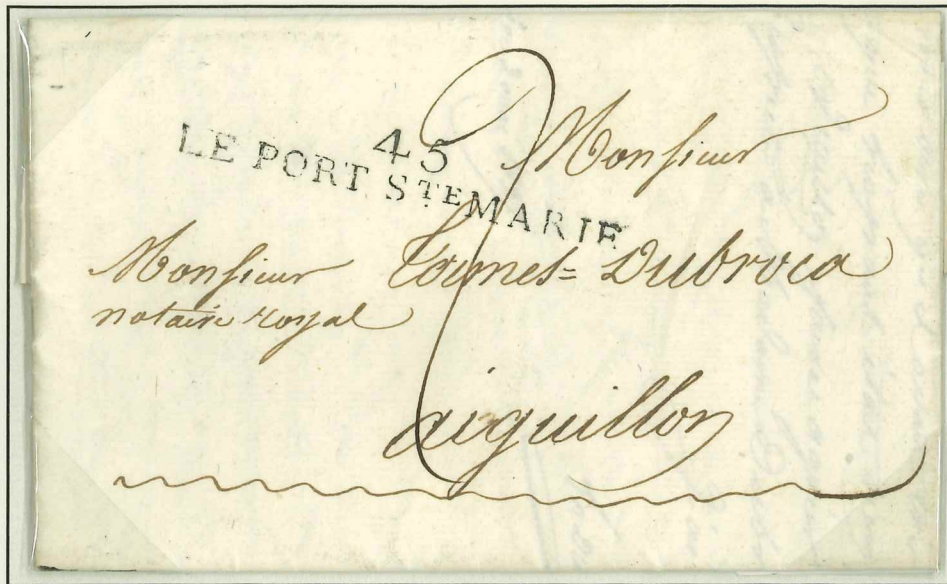 45
LE PORT STE MARIE
2
Monsieur
Monsieur Dubroca
notaire royal
aiguillon